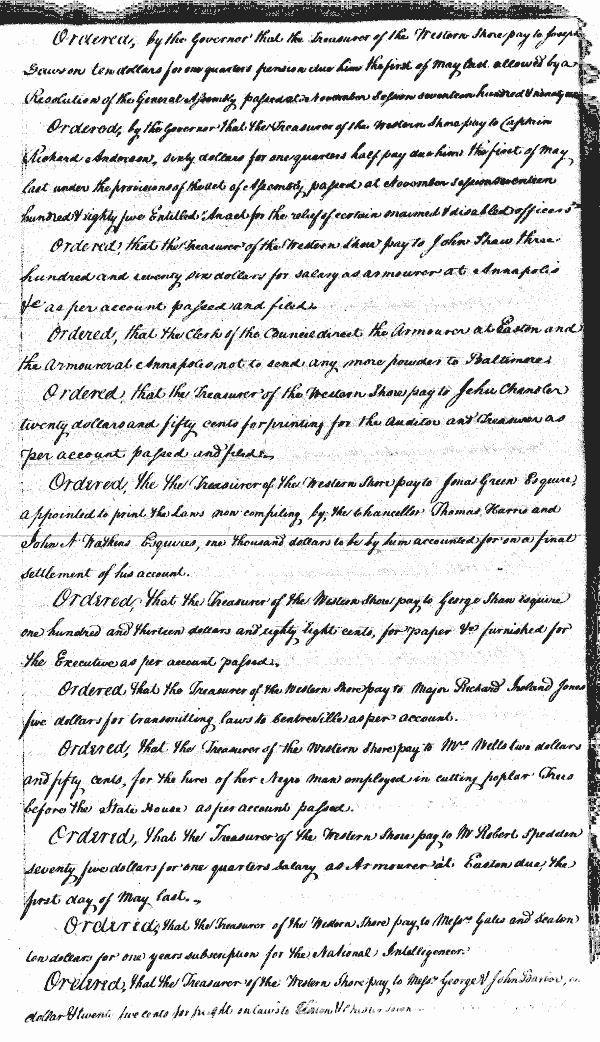 Ordered, by the Governor that the Treasurer of the Western Shore pay to Joseph
Dawson ten dollars for one quarters pension due him the first of May last allowed by a
Resolution of the General Assembly passed at November Session seventeen hundred & ninety
Ordered, by the Governor that the Treasurer of the Western Shore pay to Captain
Richard Anderson, sixty dollars for one quarters half pay due him the first of May
last under the provisions of the Act of Assembly passed at November session seventeen
hundred & eighty five Entitled "An act for the relief of certain maimed & disabled officers"
Ordered, that the Treasurer of the Western Shore pay to John Shaw three
hundred and seventy six dollars for salary as armourer at Annapolis
&c as per account passed and filed.
Ordered, that the Clerk of the Council direct the Armourer at Easton and
the Armourer at Annapolis not to send any more powder to Baltimore.
Ordered, that the Treasurer of the Western Shore pay to John Chandler
twenty dollars and fifty cents for printing for the Auditor and Treasurer as
per account passed and filed.
Ordered, the the Treasurer of the Western Shore pay to Jonas Green Esquire,
appointed to print the Laws now compiling by the Chancellor Thomas Harris and
John N Watkins Esquires, one thousand dollars to be by him accounted for on a final
settlement of his account.
Ordered, that the Treasurer of the Western Shore pay to George Shaw Esquire
one hundred and thirteen dollars and eighty eight cents, for paper &c furnished for
the Executive as per account passed.
Ordered that the Treasurer of the Western Shore pay to Major Richard Ireland Jones
five dollars for transmitting laws to Centreville as per account.
Ordered, that the Treasurer of the Western Shore pay to Mrs Wells two dollars
and fifty cents, for the hire of her Negro man employed in cutting poplar Trees
before the State House as per account passed.
Ordered, that the Treasurer of the Western Shore pay to Mr Robert Spedden
seventy five dollars for one quarters salary as Armourer at Easton due, the
first day of May last.
Ordered, that the Treasurer of the Western Shore pay to Messrs Gales and Seaton
ten dollars for one years subscription for the National Intelligencer.
Ordered, that the Treasurer of the Western Shore pay to Messrs George & John Barber,
dollar & twenty five cents for freight on laws to Easton & Chester town